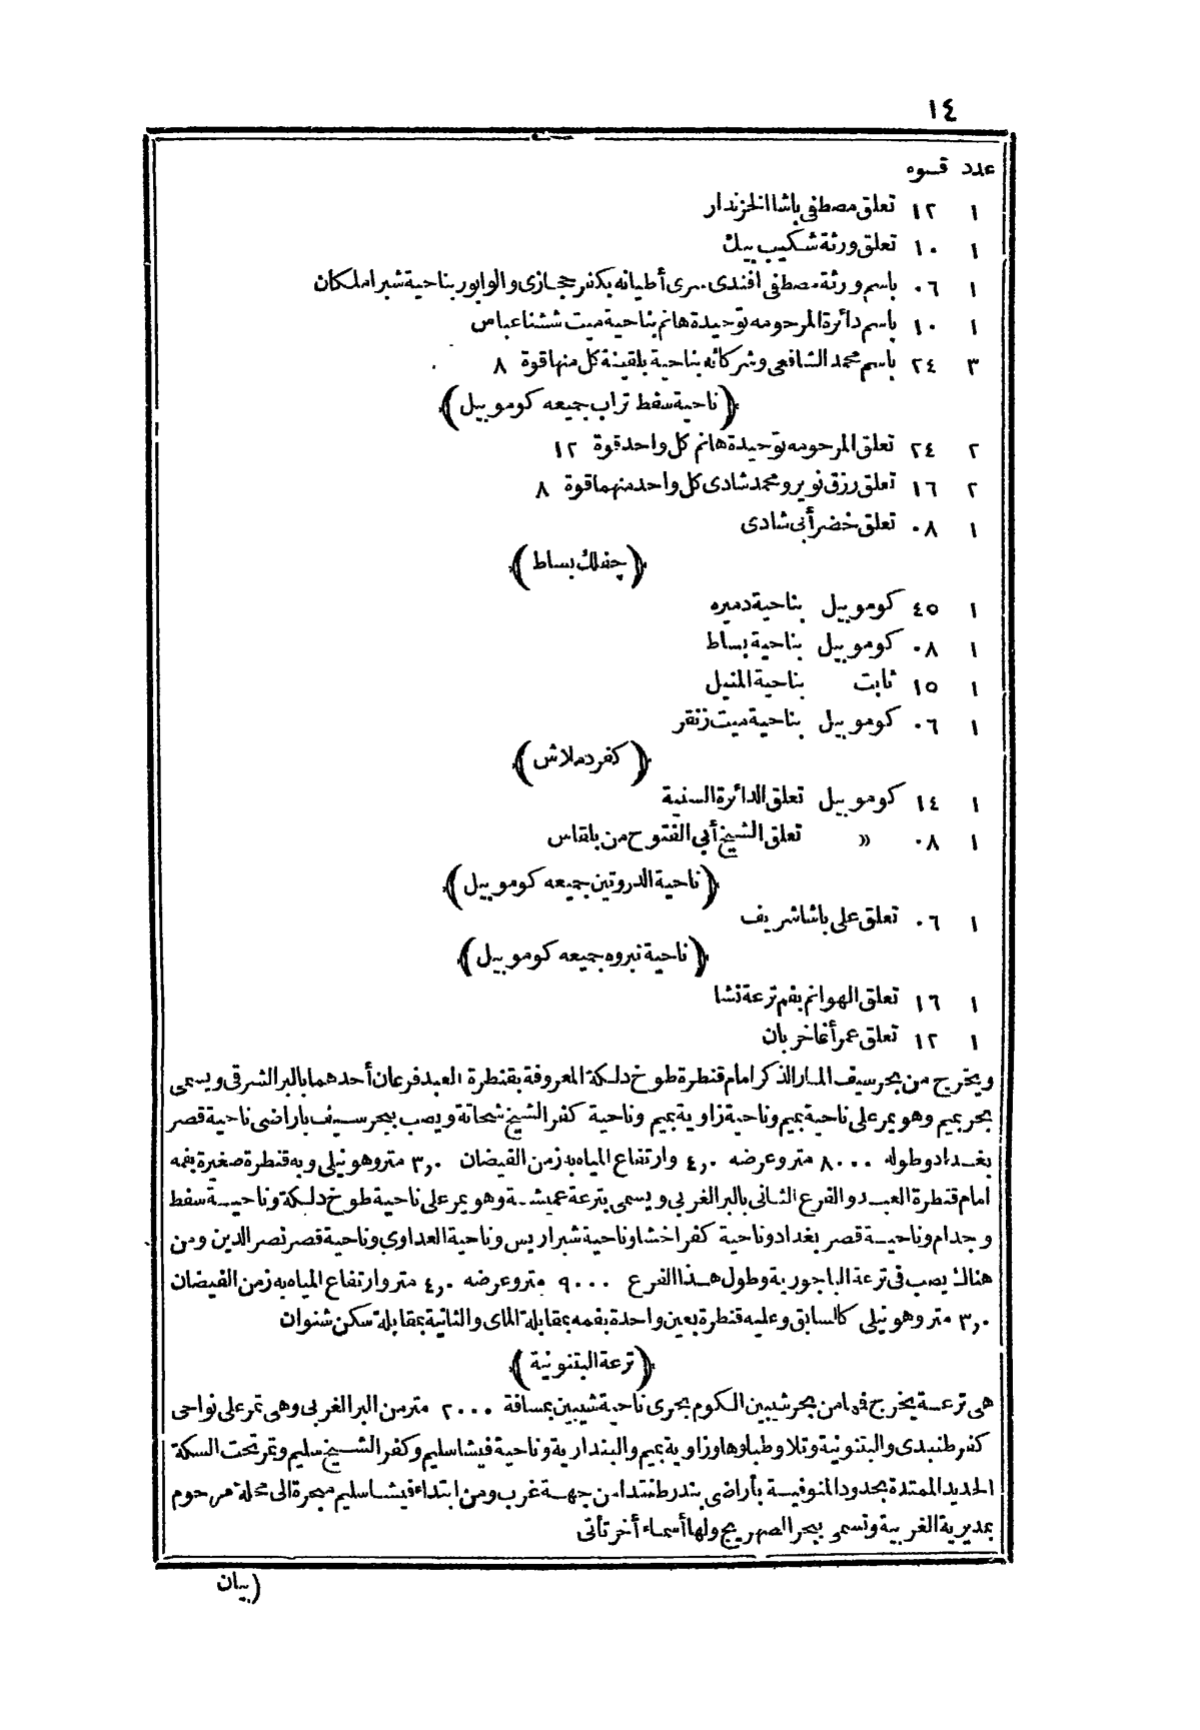 ١٤
عدد قوه
١ ١٢ تعلق مصطفى باشا الخزندار
١ ١٠ تعلق ورثة شكيب بيك
١ ٠٦ باسم ورثة مصطفى افندى سرى أطيانه بكفر حجازى والوابور بناحية شبرا ملكان
١ ١٠ باسم دائرة المرحومه توحيدة هانم بناحية ميت ششتا عباس
٣ ٢٤ باسم محمد الشافعى وشركائه بناحية بلقينة كل منها قوة ٨
(ناحية سفط تراب جميعه كوموبيل)
٢ ٢٤ تعلق المرحومه توحيدة هانم كل واحد قوة ١٢
٢ ١٦ تعلق رزق نوير ومحمد شادى كل واحد منهما قوة ٨
١ ٠٨ تعلق خضر أبى شادى
(چفلك بساط)
١ ٤٥ كوموبيل بناحية دميره
١ ٠٨ كوموبيل بناحية بساط
١ ١٥ ثابت بناحية المنيل
١ ٠٦ كوموبيل بناحية ميت زنقر
(كفر دملاش)
١ ١٤ كوموبيل تعلق الدائرة السنية
١ ٠٨ » تعلق الشيخ أبى الفتوح من بلقاس
(ناحية الدروتين جميعه كوموبيل)
١ ٠٦ تعلق على باشا شريف
(ناحية نبروه جميعه كوموبيل)
١ ١٦ تعلق الهوانم بفم ترعة نشا
١ ١٢ تعلق عمر أغا خربان
ويخرج من بحر سيف المار الذكر امام قنطرة طوخ دلكة المعروفة بقنطرة العبد فرعان أحدهما بالبر الشرقى ويسمى
بحر بميم وهو يمر على ناحية بميم وناحية زاوية بميم وناحية كفر الشيخ شحاتة ويصب ببحر سيف باراضى ناحية قصر
بغداد وطوله ٨٠٠٠ متر وعرضه ٤,٠ وارتفاع المياه به زمن الفيضان ٣,٠ متر وهو نيلى وبه قنطرة صغيرة بفمه
امام قنطرة العبد والفرع الثانى بالبر الغربى ويسمى بترعة عميشة وهو يمر على ناحية طوخ دلكة وناحية سفط
وجدام وناحية قصر بغداد وناحية كفر اخشا وناحية شبراريس وناحية العداوى وناحية قصر نصر الدين ومن
هناك يصب فى ترعة الباجورية وطول هذا الفرع ٩٠٠٠ متر وعرضه ٤,٠ متر وارتفاع المياه به زمن الفيضان
٣,٠ متر وهو نيلى كالسابق وعليه قنطرة بعين واحدة بفمه بمقابلة الماى والثانية بمقابلة سكن شنوان
(ترعة البتنونية)
هى ترعة يخرج فمها من بحر شيبين الكوم بحرى ناحية شيبين بمسافة ٢٠٠٠ متر من البر الغربى وهى تمر على نواحى
كفر طنبدى والبتنونية وتلا وطبلوها وزاوية بميم والبندارية وناحية فيشا سليم وكفر الشيخ سليم وتمر تحت السكة
الحديد الممتدة بحدود المنوفية بأراضى بندر طنتدا من جهة غرب ومن ابتداء فيشا سليم مبحرة الى محلة مرحوم
بمديرية الغربية وتسمى ببحر الصهريج ولها أسماء أخر تأتى
(بيان